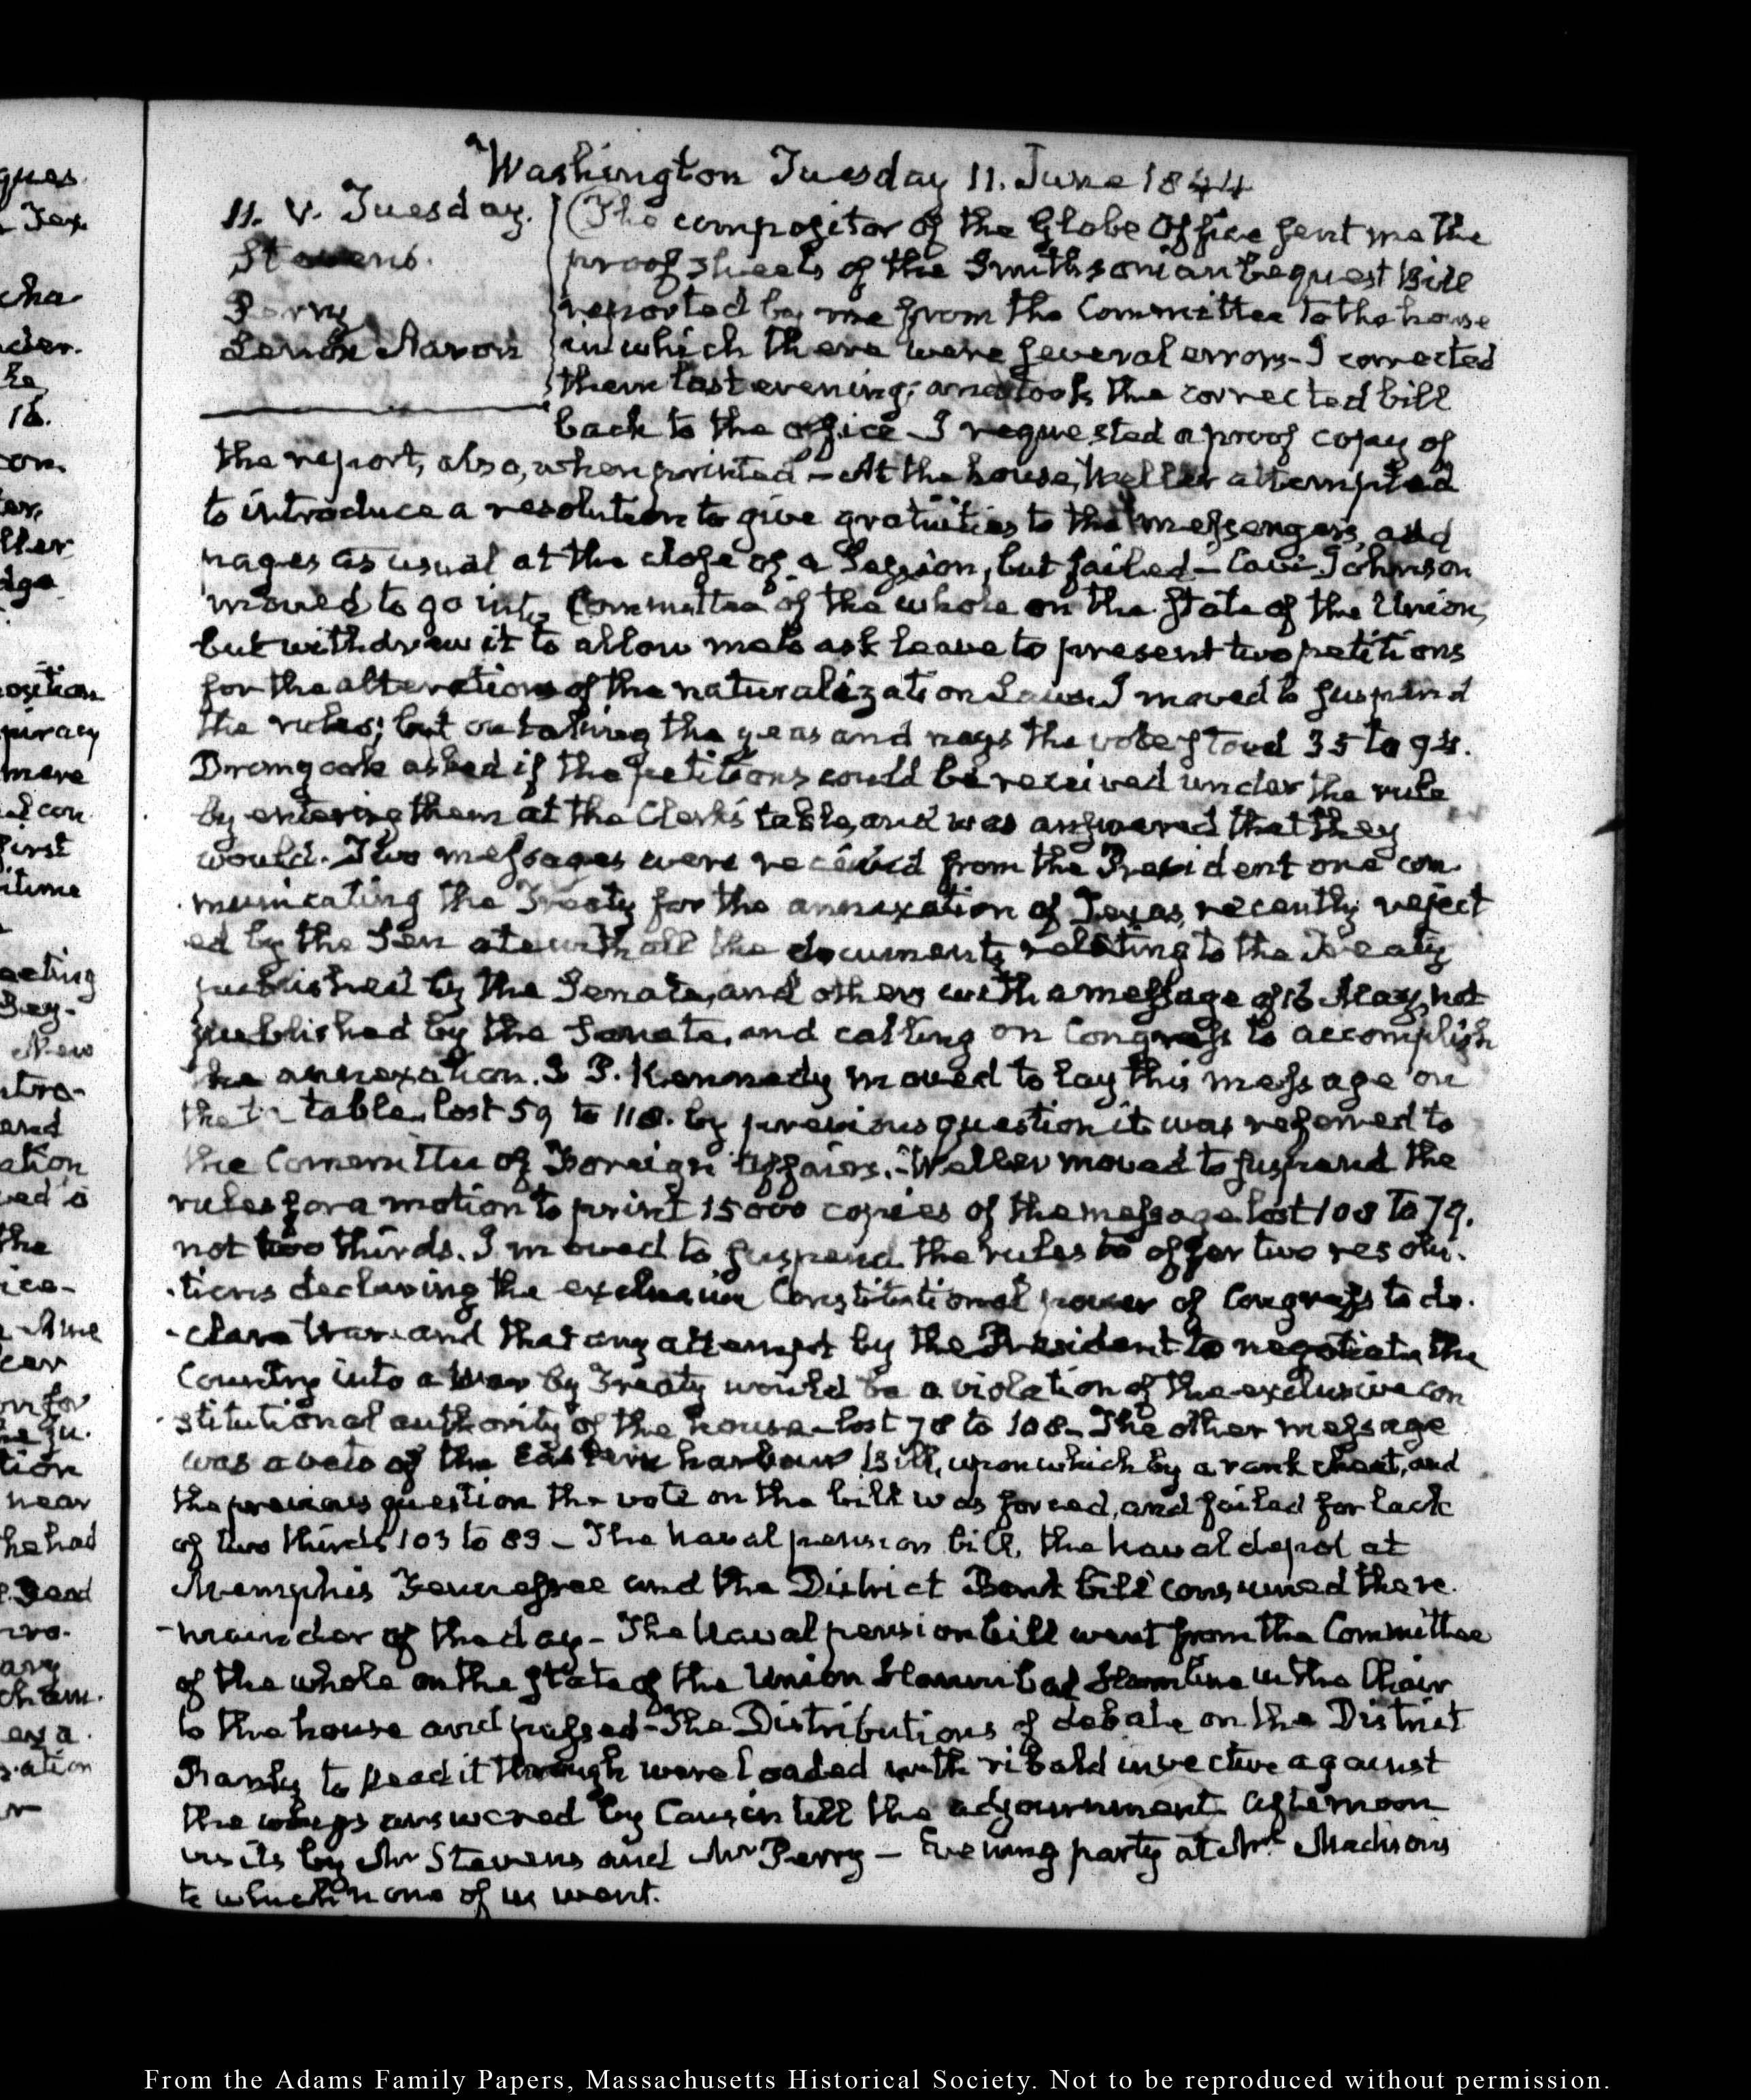 Washington Tuesday 11. June 1844
11. V. Tuesday.
Stevens.
Perry
Leach Aaron
The compositor of the Globe Office sent me the
proof sheets of the Smithsonian bequest Bill
reported by me from the Committee to the house
in which there were several errors – I corrected
them last evening; and took the corrected bill
back to the office – I requested a proof copy of
the report, also, when printed – At the house, Weller attempted
to introduce a resolution to give gratuities to the messengers, and
pages as usual at the close of a Session, but failed – Cave Johnson
moved to go into Committee of the whole on the state of the Union,
but withdrew it to allow me to ask leave to present two petitions
for the alterations of the naturalization Laws. I moved to suspend
the rules; but on taking the yeas and nays the vote stood 35 to
Dromgoole asked if the petitions could be received under the rule
by entering them at the Clerk's table, and was answered that they
would. Two messages were received from the President one com
municating the Treaty for the annexation of Texas, recently reject
ed by the Senate with all the documents relating to the Treaty
published by the Senate, and others with a message of 16 May, not
published by the Senate, and calling on Congress to accomplish
the annexation. J P. Kennedy moved to lay this message on
the table, lost 59 to 118. by previous question it was referred to
the Committee of Foreign Affairs. – Weller moved to suspend the
rules for a motion to print 15000 copies of the message lost 108 to 79.
not two thirds. I moved to suspend the rules to offer two resolu.
tions declaring the exclusive Constitutional power of Congress to de.
-clare War and that any attempt by the President to negotiate the
Country into a War by Treaty would be a violation of the exclusive con
stitutional authority of the house – lost 78 to 108 – The other message
was a veto of the Eastern harbour Bill, upon which by a rank cheat, and
the previous question the vote on the bill was forced, and failed for lack
of two thirds 103 to 89 – The naval pension bill, the naval depot at
Memphis Tennessee and the District Bank bill consumed the re.
-mainder of the day – The Naval pension bill went from the Committee
of the whole on the state of the Union Hannibal Hamline in the Chair
to the house and passed – The Distributions of debate on the District
Banks to through were loaded with ribald invective against
the whigs answered by Causin till the adjournment. Afternoon
visits by Mr Stevens and Mr Perry – Evening party at Mrs Madison's
to which none of us went.
From the Adams Family Papers, Massachusetts Historical Society. Not to be reproduced without permission.